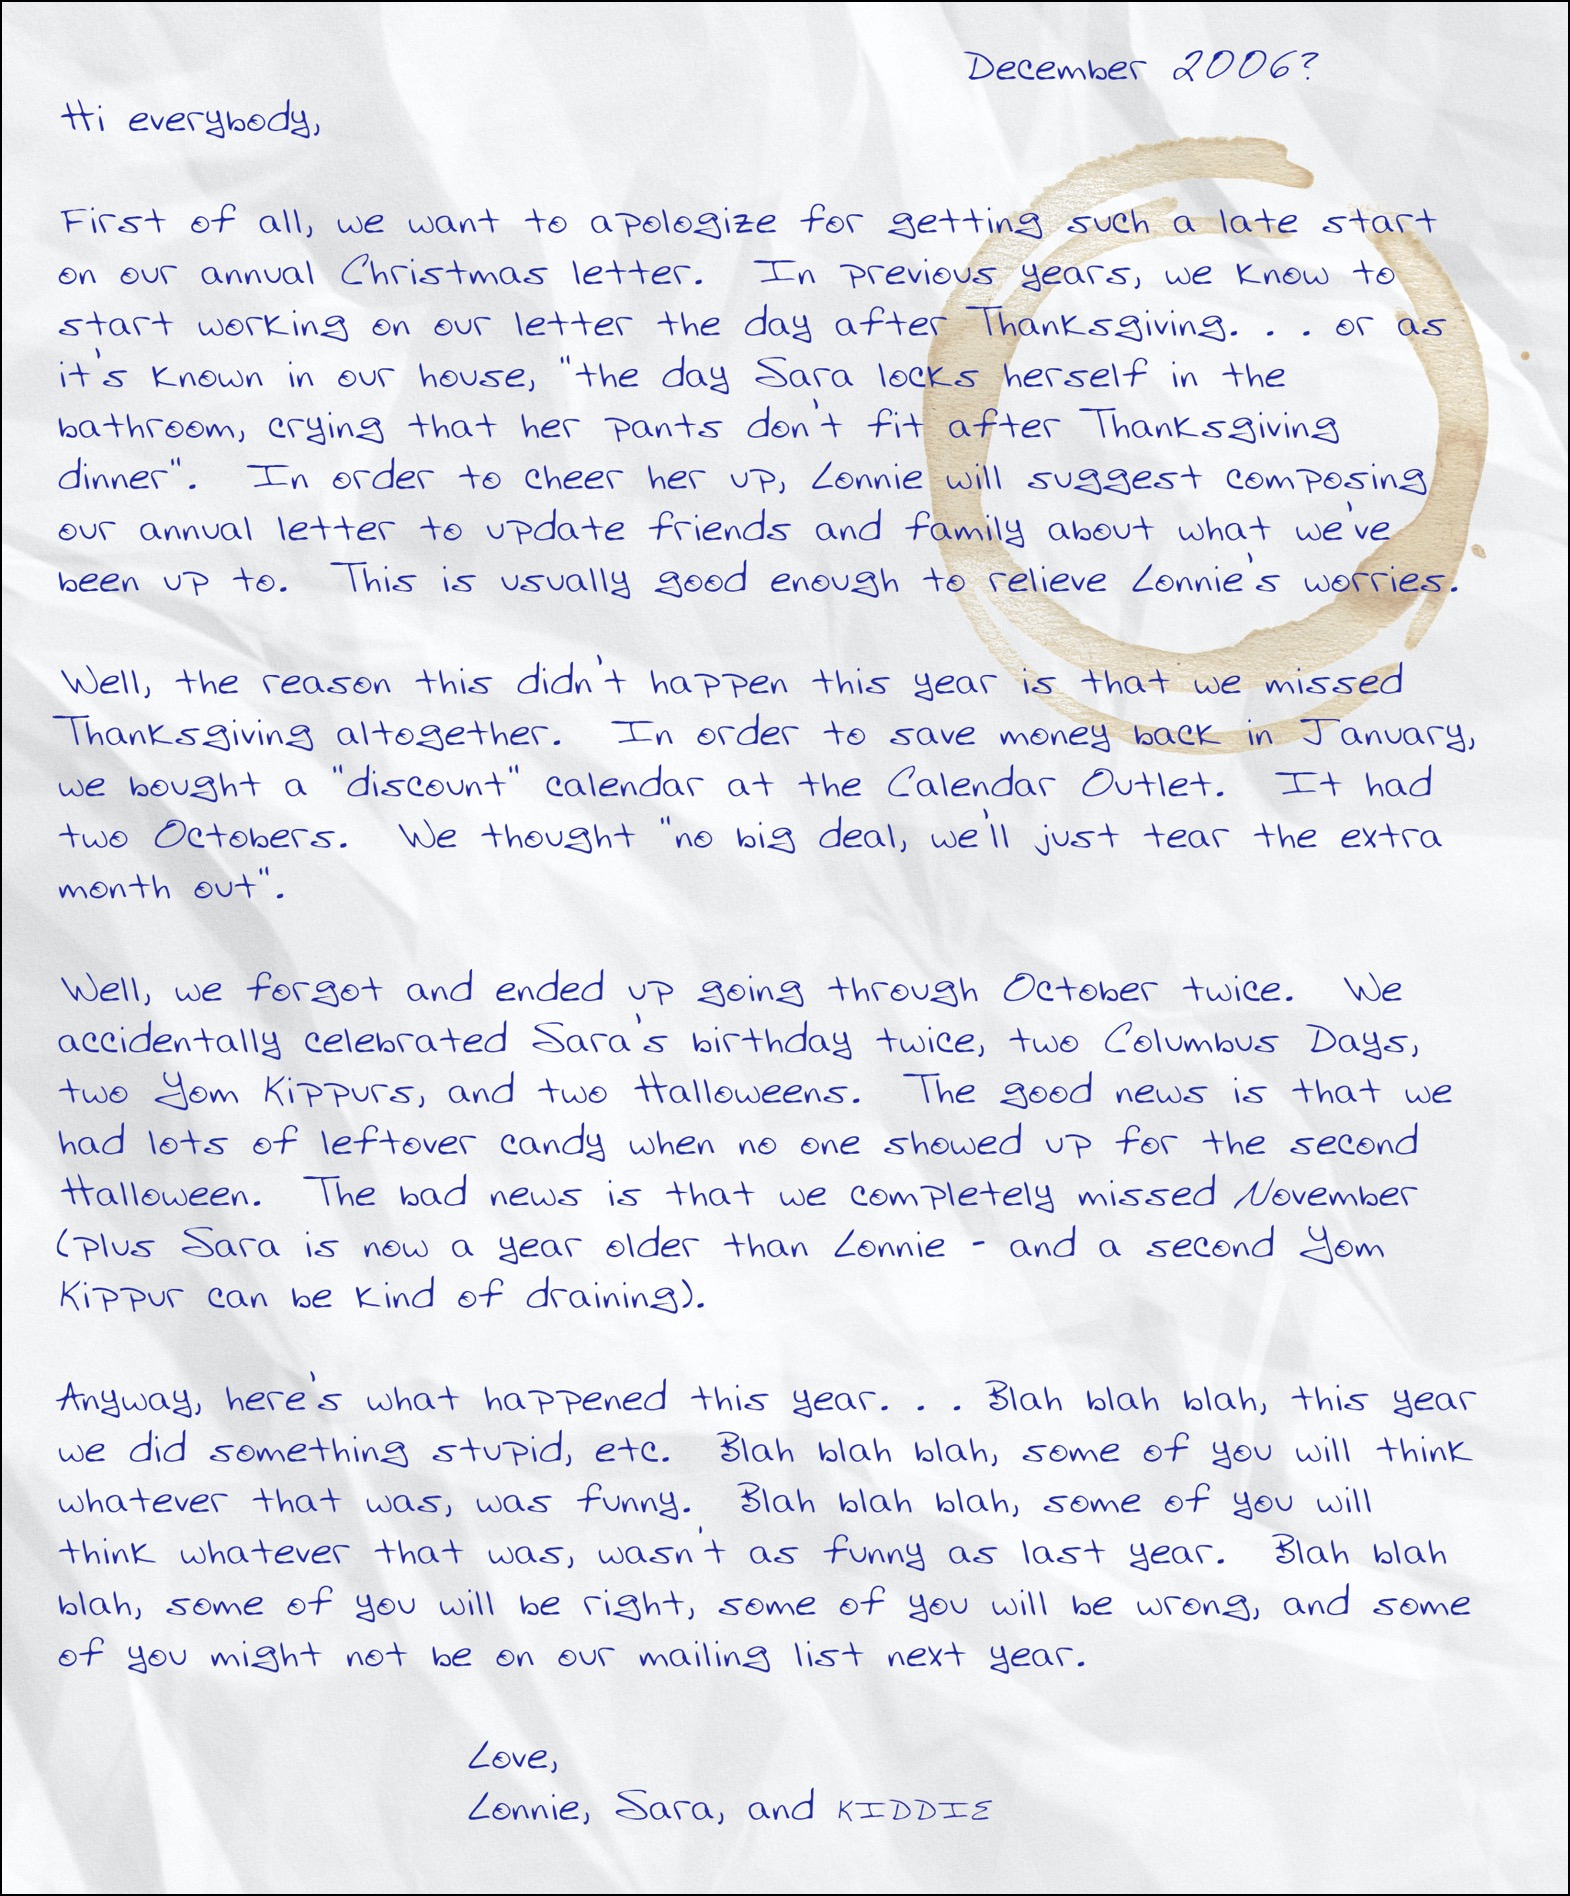 December 2006?
Hi everybody,
First of all, we want to apologize for getting such a late start
on our annual Christmas letter. In previous years, we know to
start working on our letter the day after Thanksgiving. . . or as
it's known in our house, "the day Sara locks herself in the
bathroom, crying that her pants don't fit after Thanksgiving
dinner". In order to cheer her up, Lonnie will suggest composing
our annual letter to update friends and family about what we've
been up to. This is usually good enough to relieve Lonnie's worries.
Well, the reason this didn't happen this year is that we missed
Thanksgiving altogether. In order to save money back in January,
we bought a "discount" calendar at the Calendar Outlet. It had
two Octobers. We thought "no big deal, we'll just tear the extra
month out".
Well, we forgot and ended up going through October twice. We
accidentally celebrated Sara's birthday twice, two Columbus Days,
two Yom Kippurs, and two Halloweens. The good news is that we
had lots of leftover candy when no one showed up for the second
Halloween. The bad news is that we completely missed November
(plus Sara is now a year older than Lonnie - and a second Yom
Kippur can be kind of draining).
Anyway, here's what happened this year. . . Blah blah blah, this year
we did something stupid, etc. Blah blah blah, some of you will think
whatever that was, was funny. Blah blah blah, some of you will
think whatever that was, wasn't as funny as last year. Blah blah
blah, some of you will be right, some of you will be wrong, and some
of you might not be on our mailing list next year.
Love,
Lonnie, Sara, and KIDDIE